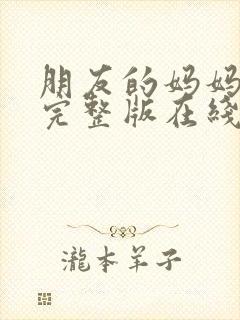 朋友的妈妈
完整版在线
瀧本羊子